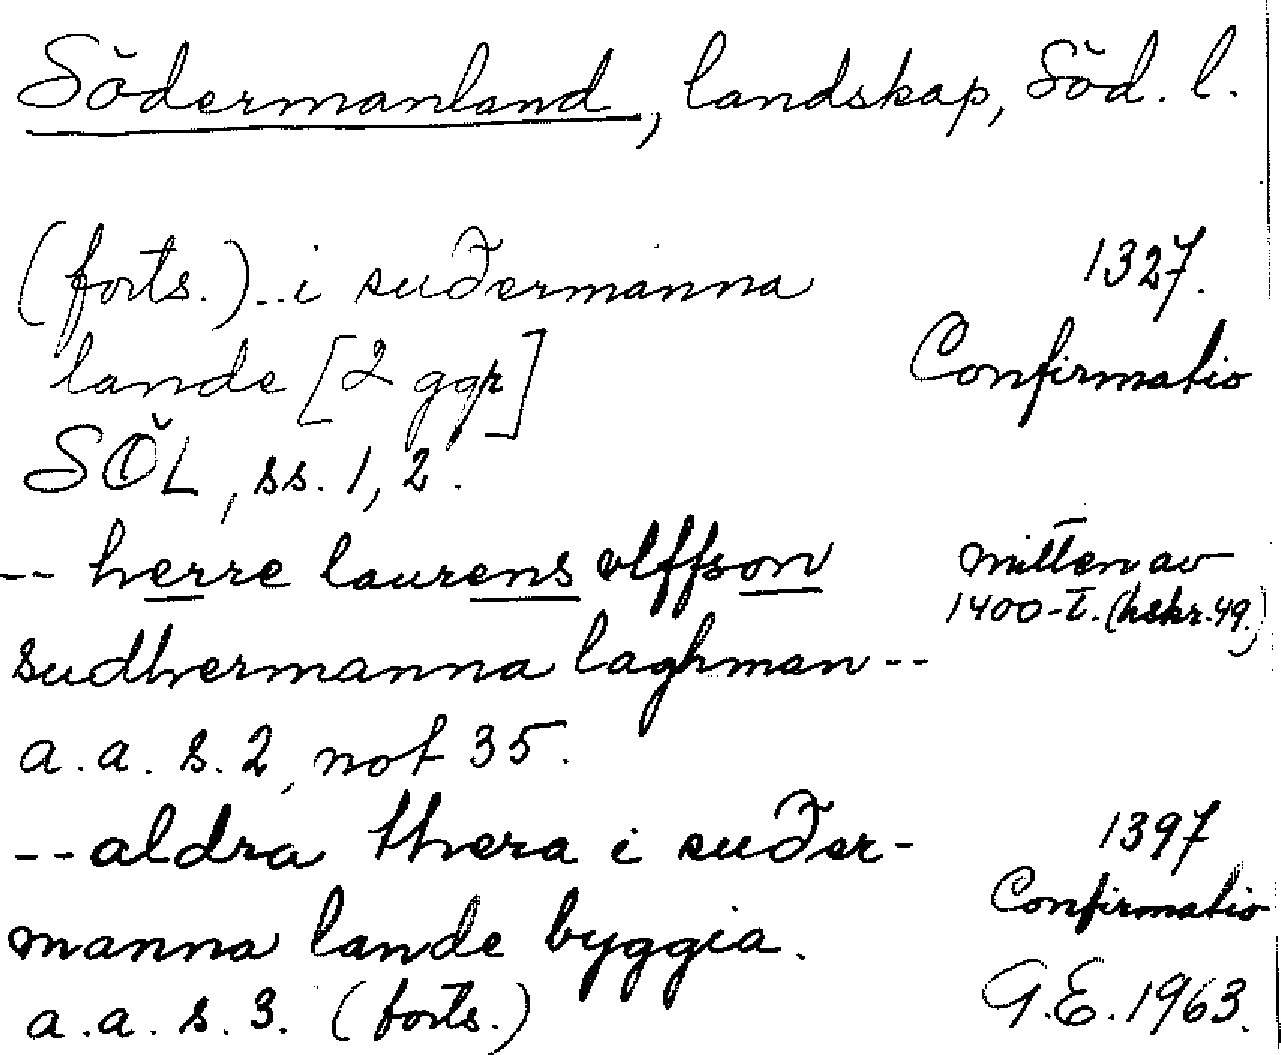 Södermanland, landskap, Söd. l.
(forts.)..i suðermanna 1327.
lande [2 ggr] Confirmatio
SÖL, ss. 1, 2.
-- herre laurens olffson mitten av
1400-t. (hskr. 49.)
sudhermanna laghman--
a.a. s. 2, not 35.
--aldra thera i suðer- 1397
Confirmatio
manna lande byggia.
a.a. s. 3. (forts.) G.E. 1963.